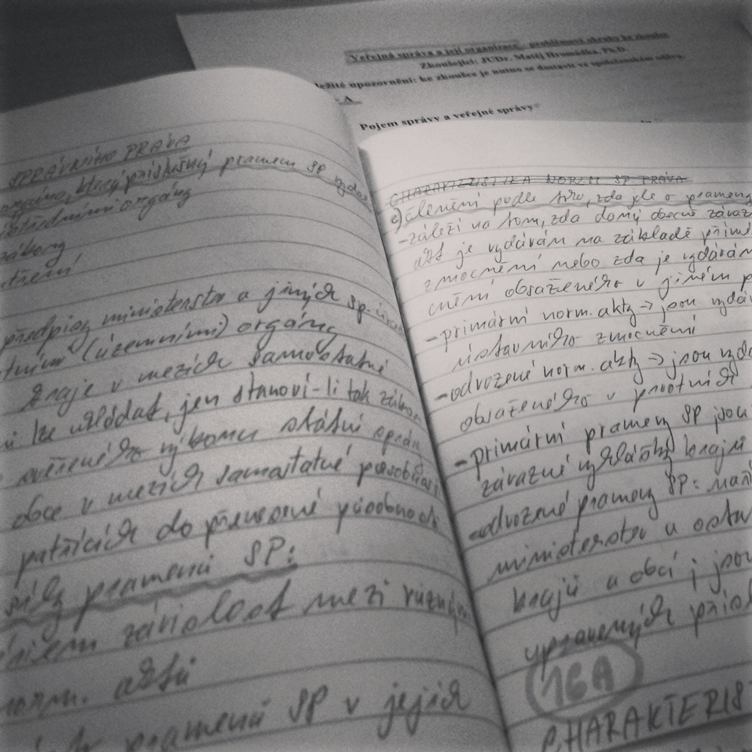 Veřejná správa a její organizace - problémové okruhy ke zkoušce
Zkoušející: JUDr. Matěj Hromádka, Ph.D.
ležité upozornění: ke zkoušce je nutno se dostavit ve společenském oděvu.
Pojem správy a veřejné správy
SPRÁVNÍHO PRÁVA
orgánu, který příslušný pramen SP vydal
ústředními orgány
zákony
předpisy ministerstev a jiných sp. úřadů
(územními) orgány
kraje v mezích samostatné
lze ukládat, jen stanoví-li tak zákon
svěřeného výkonu státní správy
obce v mezích samostatné působnosti
patřících do přenesené působnosti
síly pramenů SP:
závislost mezi různými
norm. aktů
pramenů SP v jejich
CHARAKTERISTIKA NOREM SP PRÁVA
c) členění podle toho, zda jde o prameny
- záleží na tom, zda daný obecně závaz
akt je vydáván na základě přímé
zmocnění nebo zda je vydáván
cnění obsaženého v jiném p
- primární norm. akty → jsou vydá
ústavního zmocnění
- odvozené norm. akty → jsou vydá
obsaženého v prvotních
- primární prameny SP jsou
závazné vyhlášky krajů
- odvozené prameny SP: nař
ministerstev a ostat
krajů a obcí j jsou
upravených příst
16A
CHARAKTERIS